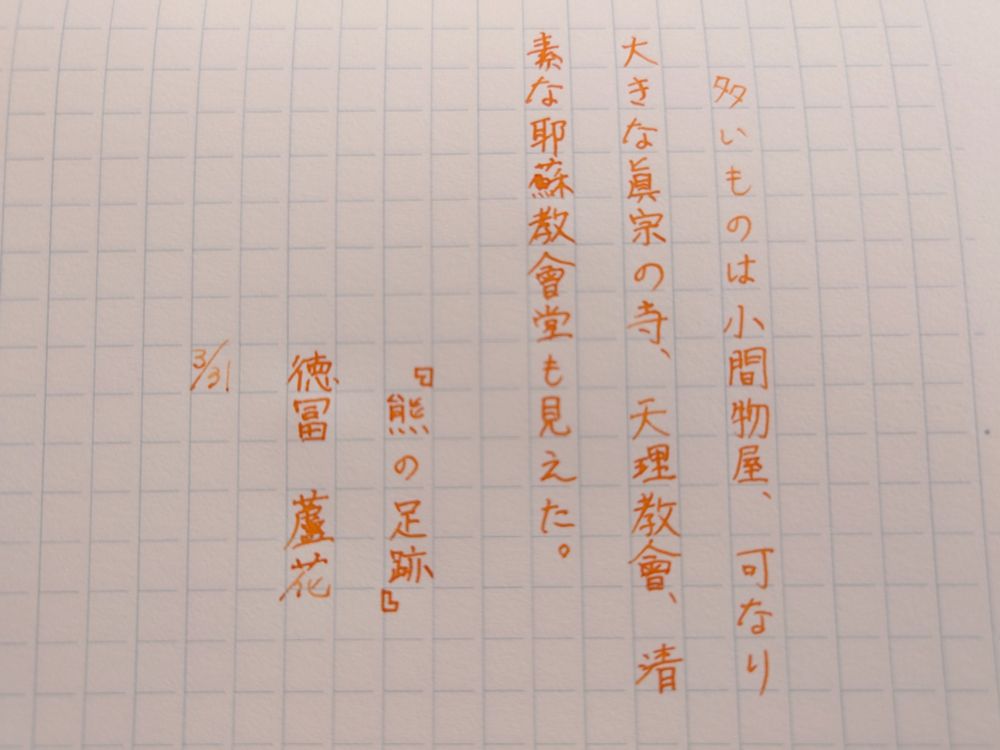 多いものは小間物屋、可なり
大きな眞宗の寺、天理教會、清
素な耶蘇教會堂も見えた。
『熊の足跡』
徳冨 蘆花
3/31